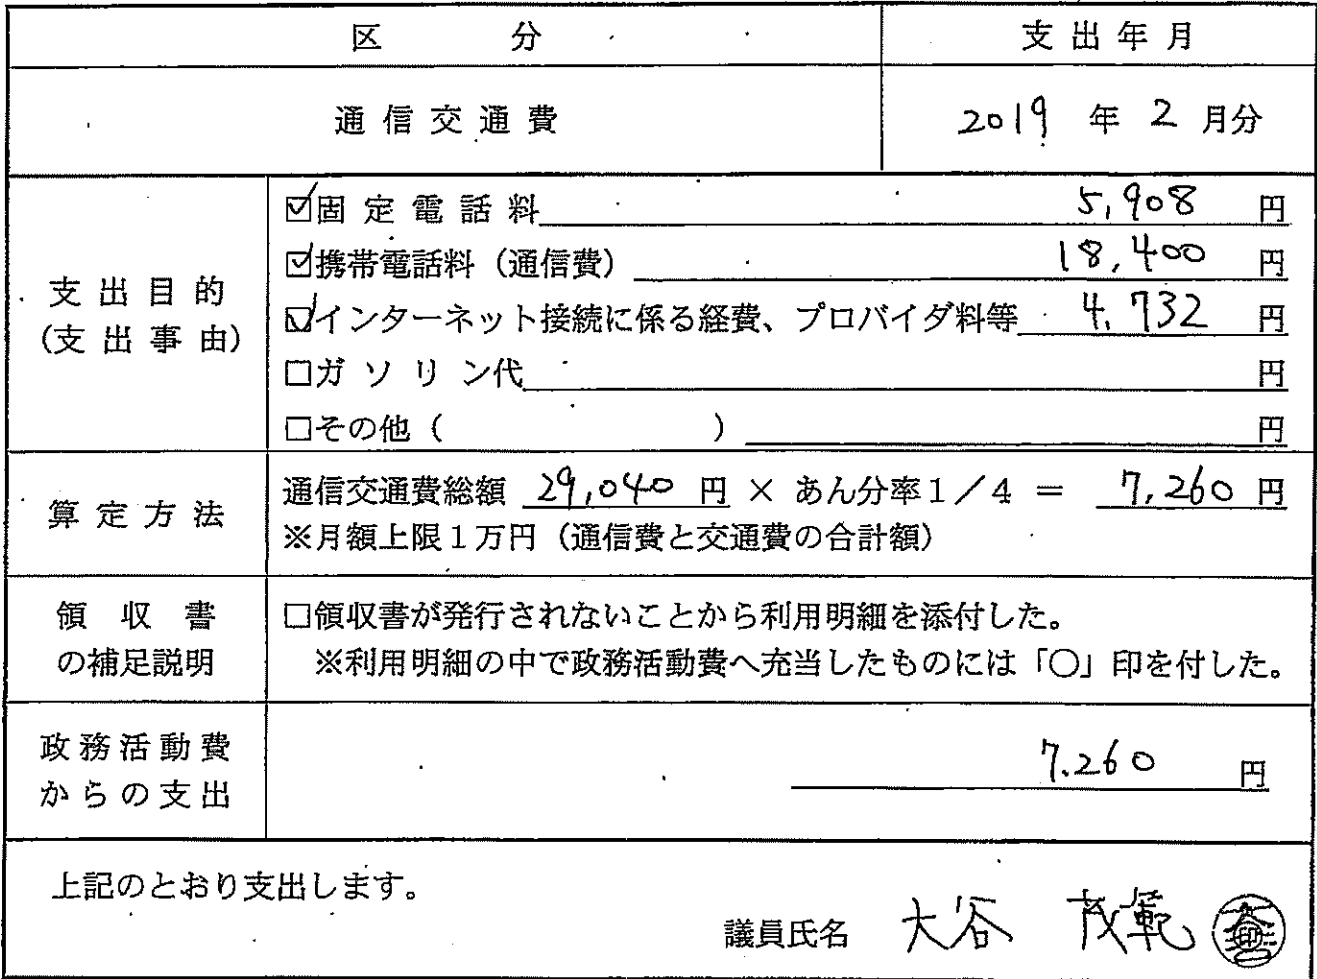 区 分 支出年月
通信交通費 2019 年 2 月分
☑固定電話料 5,908 円
☑携帯電話料（通信費） 18,400 円
支出目的
（支出事由）
☑インターネット接続に係る経費、プロバイダ料等 4,732 円
□ガソリン代 円
□その他（ ） 円
算定方法
通信交通費総額 29,040 円 × あん分率１／４ ＝ 7,260 円
※月額上限１万円（通信費と交通費の合計額）
領収書
の補足説明
□領収書が発行されないことから利用明細を添付した。
※利用明細の中で政務活動費へ充当したものには「〇」印を付した。
政務活動費
からの支出
7.260 円
上記のとおり支出します。
議員氏名 大谷 茂範